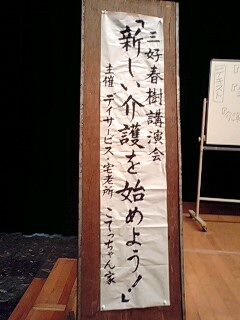 三好春樹講演会
「新しい介護を始めよう!」
主催 デイサービス・宅老所 こてっちゃん家
テキスト